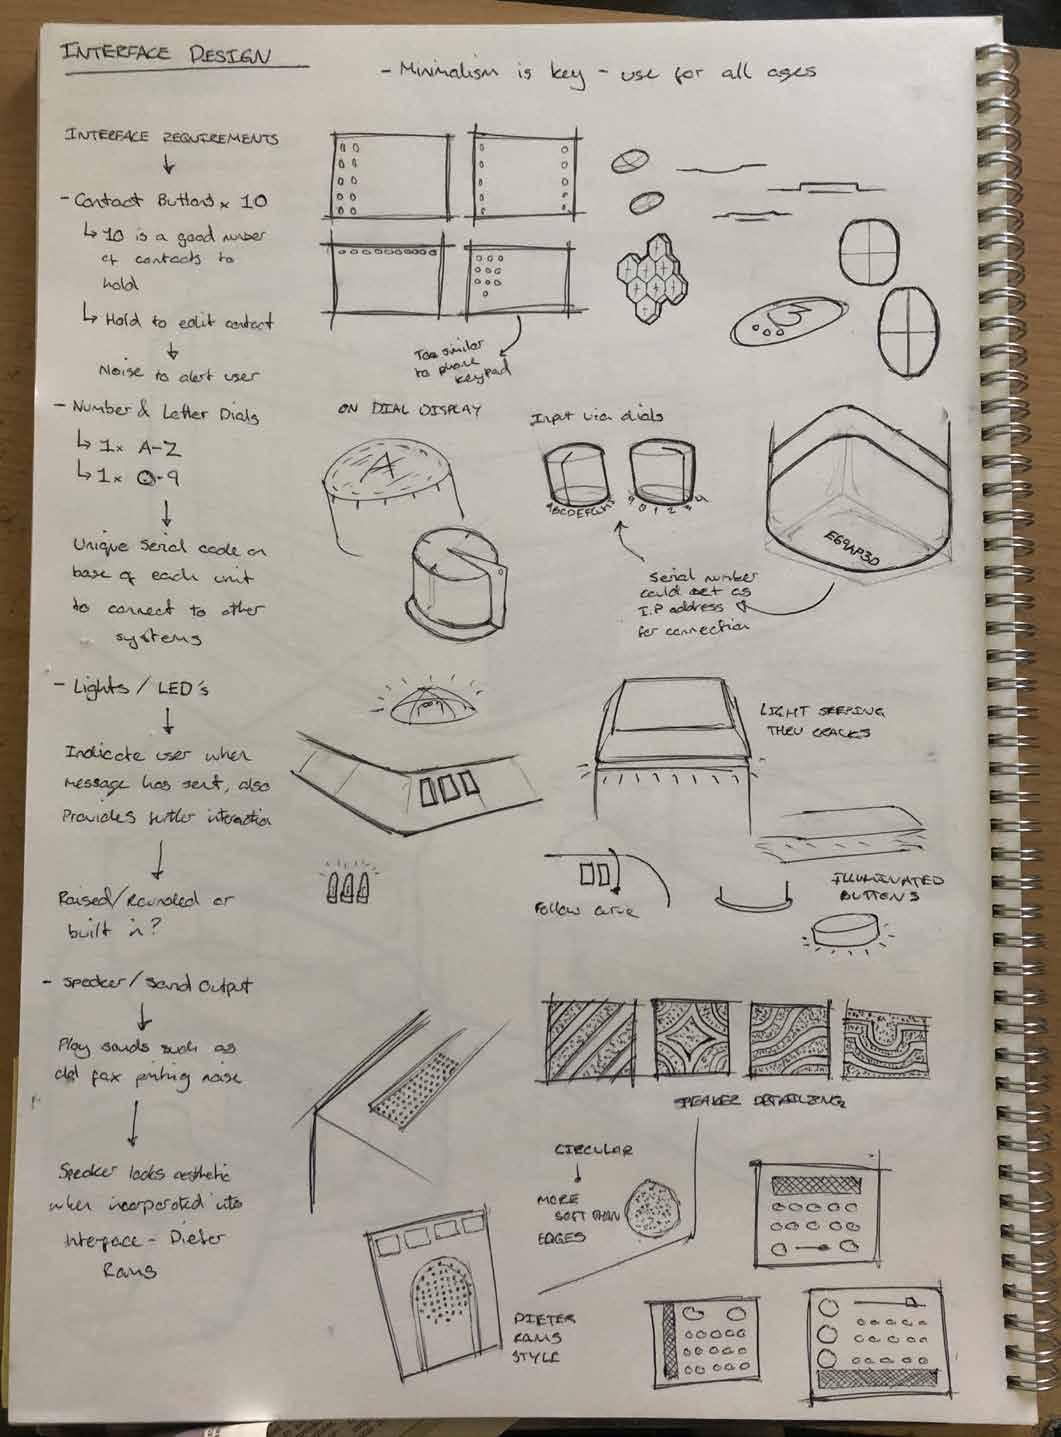 INTERFACE DESIGN
- Minimalism is key - use for all ages
INTERFACE REQUIREMENTS
- Contact Buttons x 10
10 is a good number
of contacts to
hold
Hold to edit contact
Noise to alert user
Too similar
to phone
keypad
- Number & Letter Dials
1x A-Z
1x 0-9
Unique serial code on
base of each unit
to connect to other
systems
ON DIAL DISPLAY
A
Input via dials
ABCDEFGHI
9 0 1 2 3 4
Serial number
could act as
I.P address
for connection
E69AP30
- Lights / LED's
Indicate user when
message has sent, also
Provides further interaction
Raised/Rounded or
built in?
LIGHT SEEPING
THRU CRACKS
Follow curve
ILLUMINATED
BUTTONS
- Speaker/Sound Output
Play sounds such as
old fax printing noise
Speaker looks aesthetic
when incorporated into
Interface - Dieter
Rams
SPEAKER DETAILING
CIRCULAR
MORE
SOFT THAN
EDGES
DIETER
RAMS
STYLE